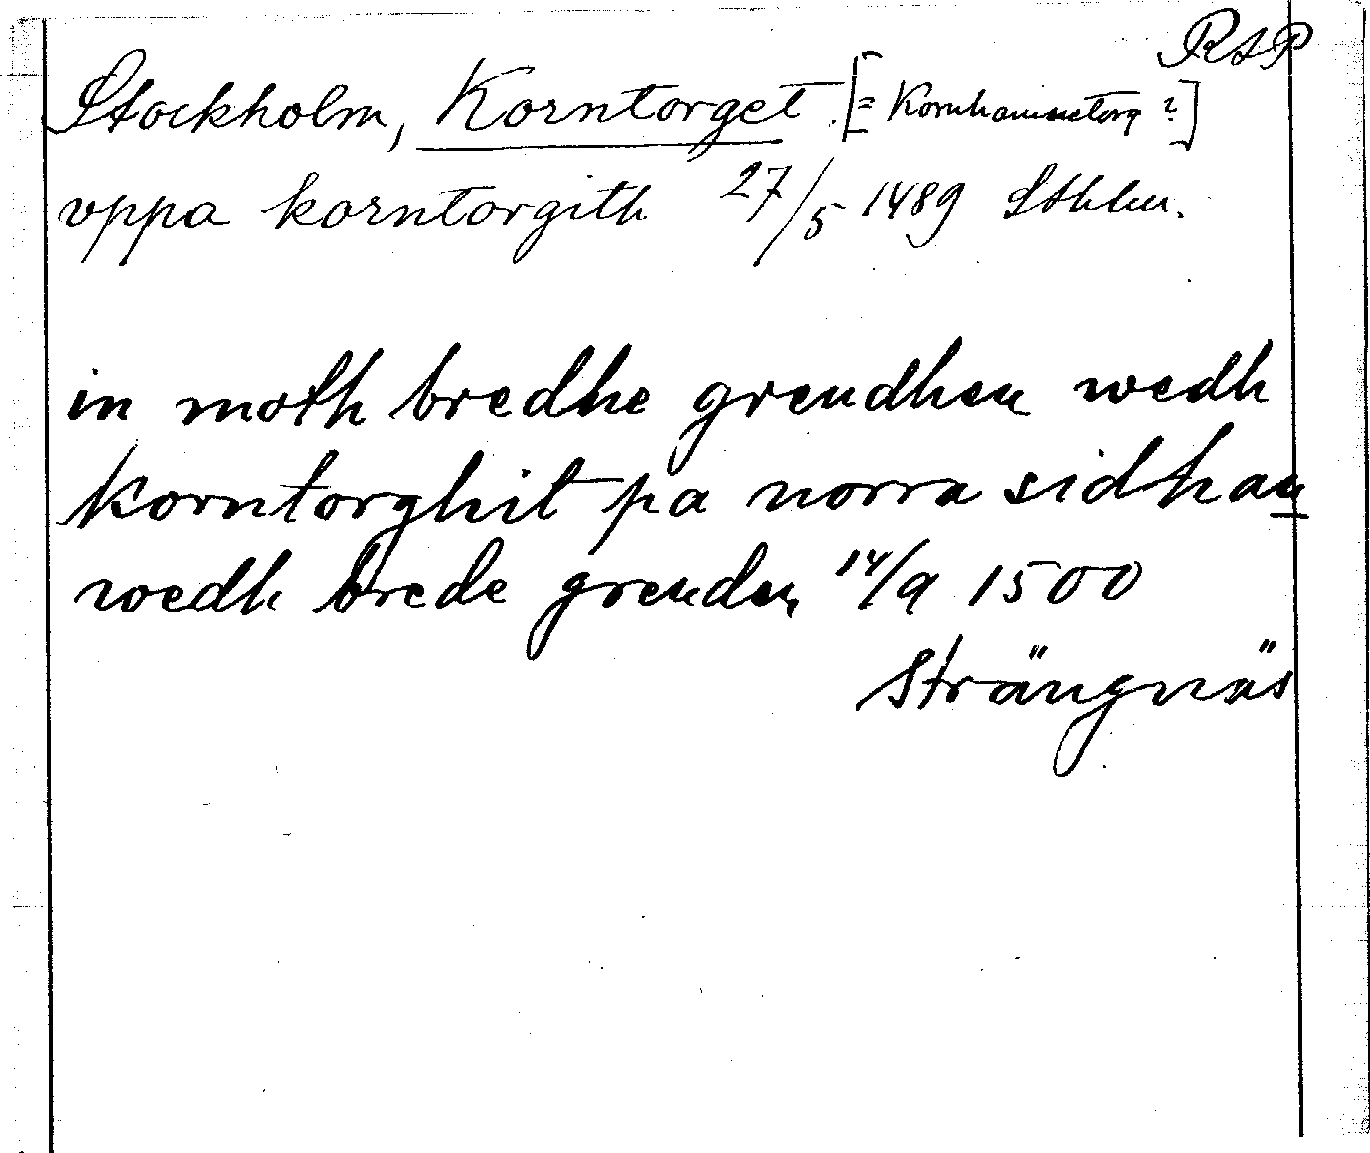 RAP
Stockholm, Korntorget. [= Kornhamnstorg ?]
vppa korntorgith 27/5 1489 Sthlm.
in moth bredhe grendhen wedh
korntorghit pa norra sidhan
wedh brede grenden 14/9 1500
Strängnäs